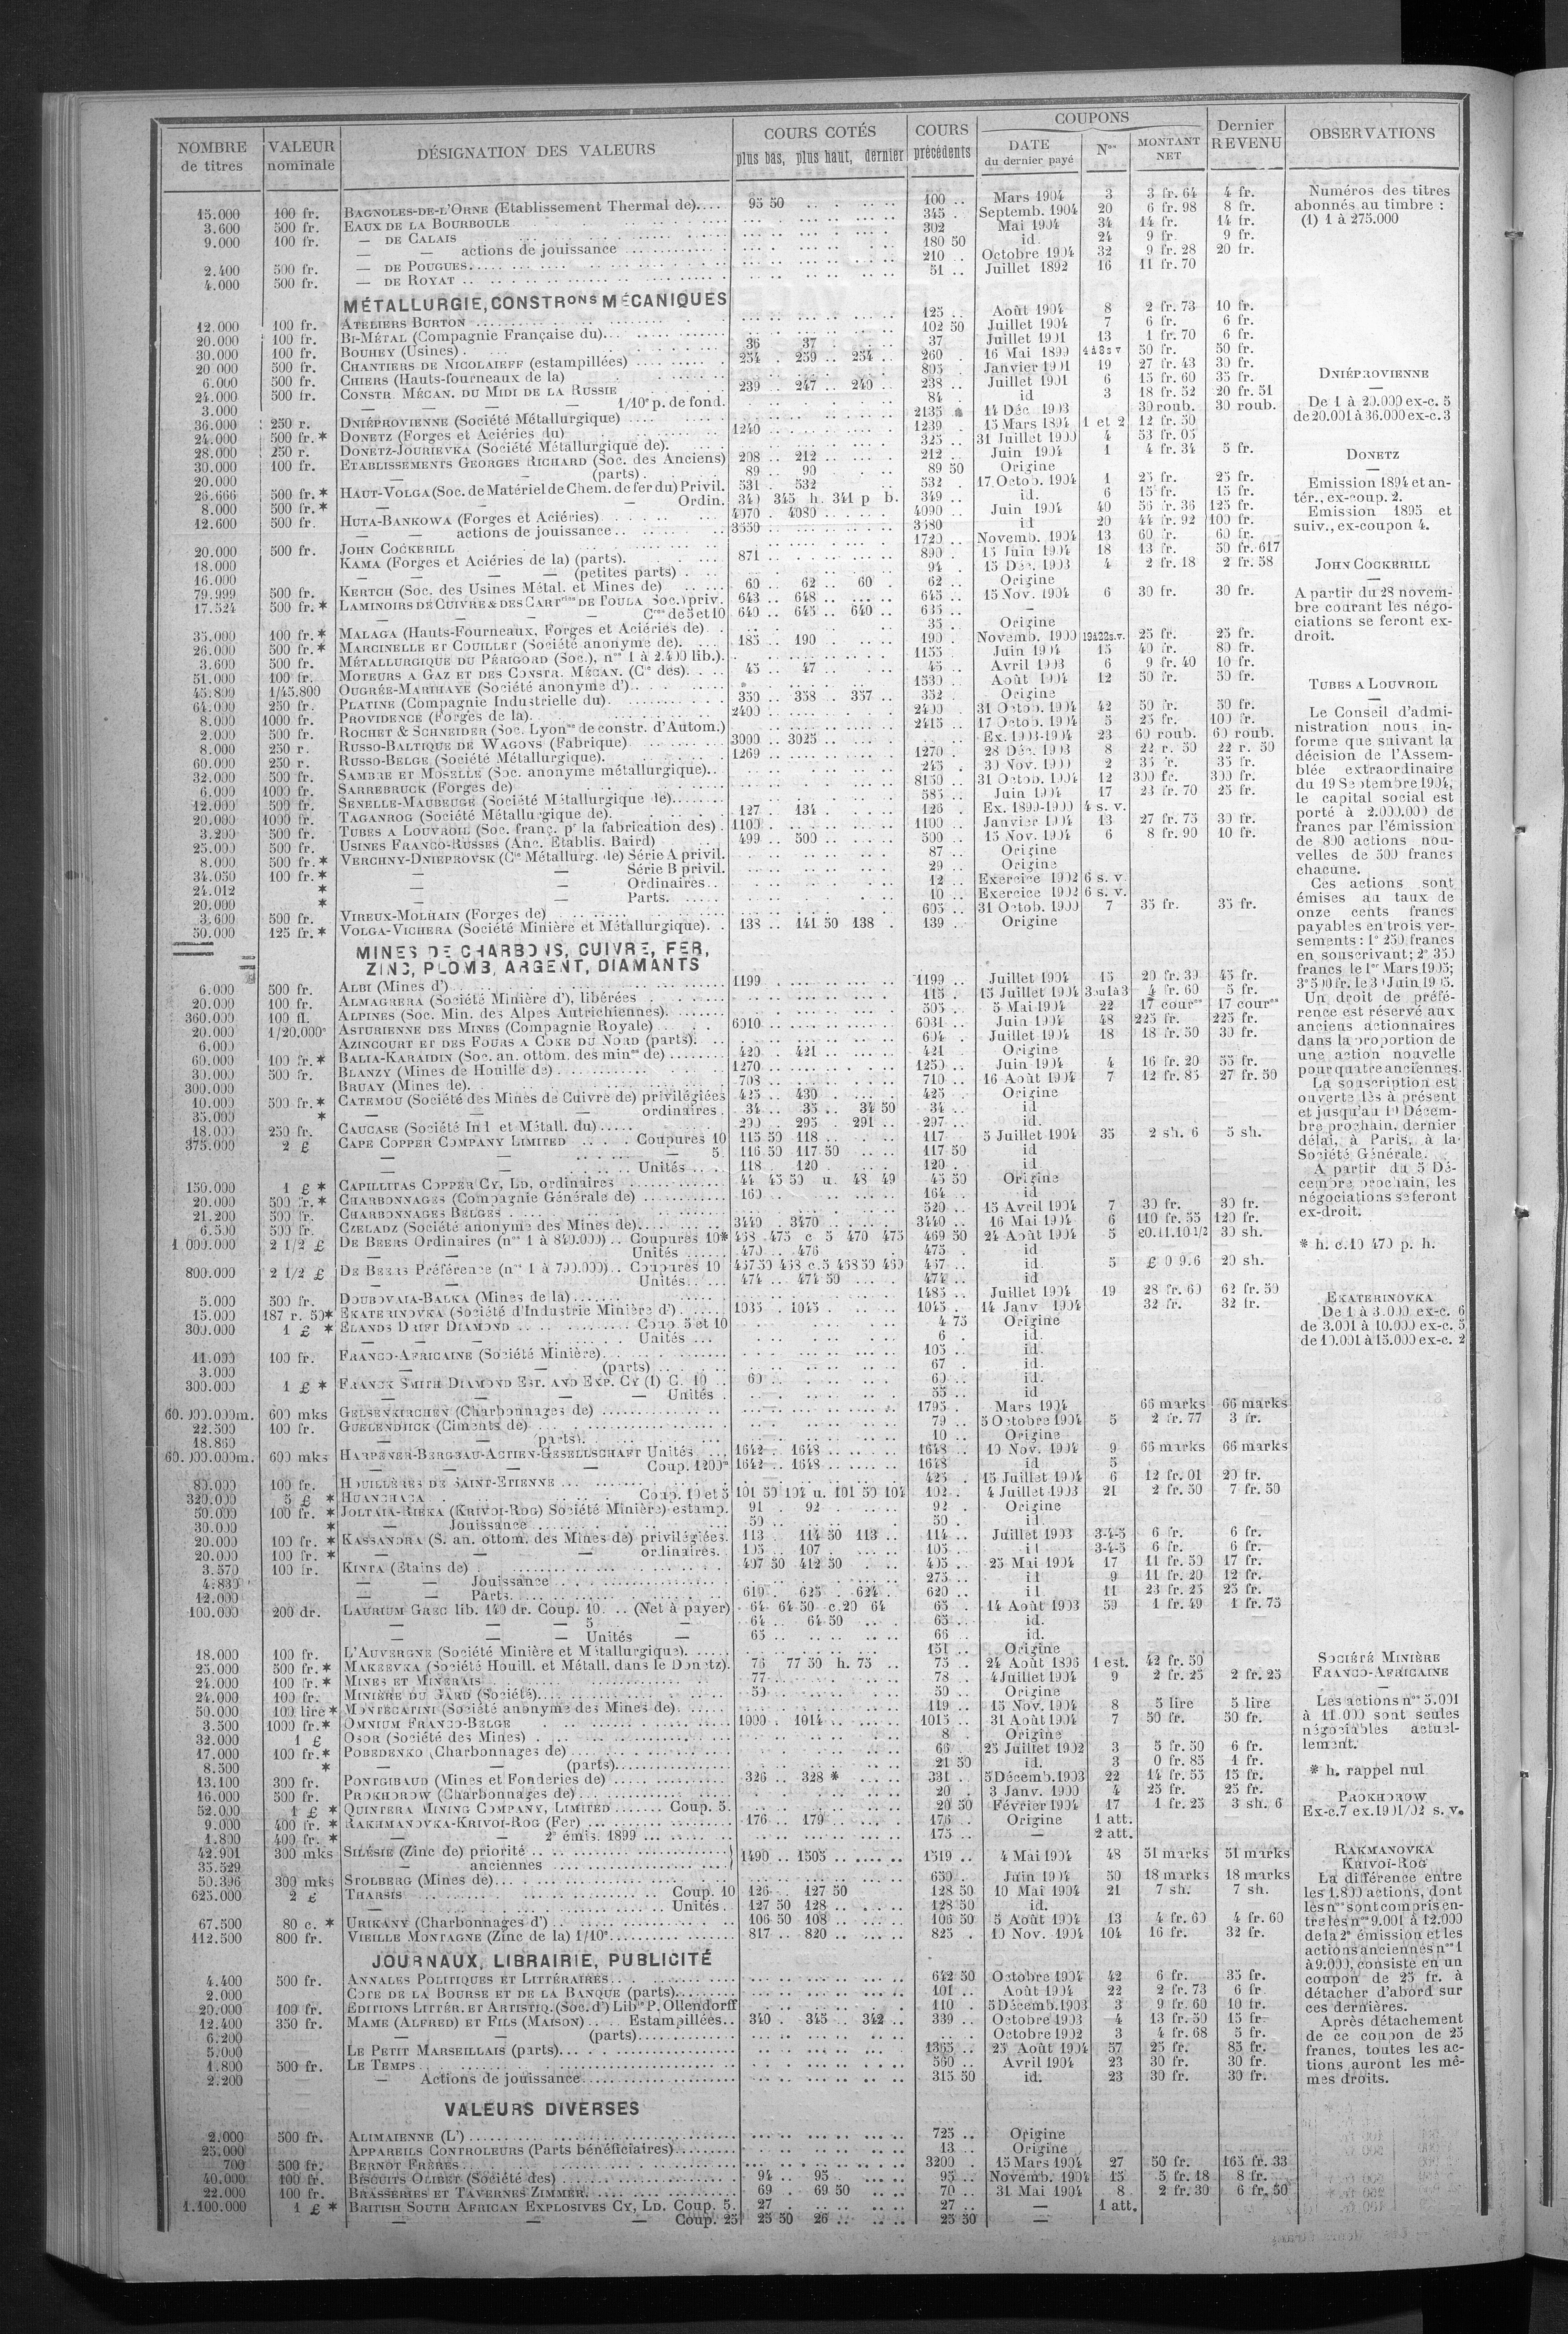 NOMBRE de titres | VALEUR nominale | DÉSIGNATION DES VALEURS | COURS COTÉS plus bas, plus haut, dernier | COURS précédents | COUPONS DATE du dernier payé | Nos | MONTANT NET | Dernier REVENU | OBSERVATIONS
15.000 100 fr. BAGNOLES-DE-L'ORNE (Etablissement Thermal de).... 95 50 100 .. Mars 1904 3 3 fr. 64 4 fr.
3.600 500 fr. EAUX DE LA BOURBOULE 345 . Septemb. 1904 20 6 fr. 98 8 fr.
9.000 100 fr. — DE CALAIS 302 Mai 1904 34 14 fr. 14 fr.
— — actions de jouissance 180 50 id. 24 9 fr. 9 fr.
2.400 500 fr. — DE POUGUES 210 .. Octobre 1904 32 9 fr. 28 20 fr.
4.000 500 fr. — DE ROYAT 51 .. Juillet 1892 16 11 fr. 70
MÉTALLURGIE, CONSTRons MÉCANIQUES
12.000 100 fr. ATELIERS BURTON 125 .. Août 1904 8 2 fr. 73 10 fr.
20.000 100 fr. BI-MÉTAL (Compagnie Française du) 102 50 Juillet 1904 7 6 fr. 6 fr.
30.000 100 fr. BOUHEY (Usines) 36 37 37 Juillet 1901 13 1 fr. 70 6 fr.
20 000 500 fr. CHANTIERS DE NICOLAIEFF (estampillées) 254 . 259 .. 254 .. 260 . 16 Mai 1899 4 à 8 s v 50 fr. 50 fr.
6.000 500 fr. CHIERS (Hauts-fourneaux de la) 895 Janvier 1901 19 27 fr. 43 30 fr.
24.000 500 fr. CONSTR. MÉCAN. DU MIDI DE LA RUSSIE 239 .. 247 .. 240 .. 238 .. Juillet 1901 6 15 fr. 60 35 fr.
3.000 — — — 1/10e p. de fond. 84 . id 3 18 fr. 52 20 fr. 51
36.000 250 r. DNIÉPROVIENNE (Société Métallurgique) 2135 * 14 Déc. 1903 30 roub. 30 roub.
24.000 500 fr.* DONETZ (Forges et Aciéries du) 1240 1239 . 15 Mars 1894 1 et 2 12 fr. 50
28.000 250 r. DONETZ-JOURIEVKA (Société Métallurgique de). 325 .. 31 Juillet 1900 4 53 fr. 05
30.000 100 fr. ETABLISSEMENTS GEORGES RICHARD (Soc. des Anciens) 208 .. 212 212 .. Juin 1904 1 4 fr. 34 5 fr.
20.000 — — (parts). 89 .. 90 89 50 Origine
26.666 500 fr.* HAUT-VOLGA (Soc. de Matériel de Chem. de fer du) Privil. 531 . 532 532 . 17 Octob. 1904 1 25 fr. 25 fr.
8.000 500 fr.* — — Ordin. 340 345 h. 341 p b. 349 .. id. 6 15 fr. 15 fr.
12.600 500 fr. HUTA-BANKOWA (Forges et Aciéries) 4070 . 4080 4090 .. Juin 1904 40 56 fr. 36 125 fr.
— — actions de jouissance 3550 3580 id 20 44 fr. 92 100 fr.
20.000 500 fr. JOHN COCKERILL 1720 .. Novemb. 1904 13 60 fr. 60 fr.
18.000 KAMA (Forges et Aciéries de la) (parts). 871 890 . 15 Juin 1904 18 13 fr. 50 fr. 617
16.000 — — — (petites parts) 94 . 15 Déc. 1903 4 2 fr. 18 2 fr. 58
79.999 500 fr. KERTCH (Soc. des Usines Métal. et Mines de) 60 .. 62 .. 60 . 62 .. Origine
17.524 500 fr.* LAMINOIRS DE CUIVRE & DES CARTries DE TOULA Soc.) priv. 643 .. 648 645 .. 15 Nov. 1904 6 30 fr. 30 fr.
— — — Cres de 5 et 10 640 .. 645 .. 640 .. 635 .. —
35.000 100 fr.* MALAGA (Hauts-Fourneaux, Forges et Aciéries de) 35 .. Origine
26.000 500 fr.* MARCINELLE ET COUILLET (Société anonyme de). 185 .. 190 190 . Novemb. 1900 19 à 22 s.v. 25 fr. 25 fr.
3.600 500 fr. MÉTALLURGIQUE DU PÉRIGORD (Soc.), nos 1 à 2.400 lib.). 1155 .. Juin 1904 15 40 fr. 80 fr.
51.000 100 fr. MOTEURS A GAZ ET DES CONSTR. MÉCAN. (Cie des). 45 .. 47 45 .. Avril 1903 6 9 fr. 40 10 fr.
45.800 1/45.800 OUGRÉE-MARIHAYE (Société anonyme d') 1530 .. Août 1904 12 50 fr. 50 fr.
64.000 250 fr. PLATINE (Compagnie Industrielle du). 350 .. 358 .. 357 .. 352 . Origine
8.000 1000 fr. PROVIDENCE (Forges de la). 2400 2400 .. 31 Octob. 1904 42 50 fr. 50 fr.
2.000 500 fr. ROCHET & SCHNEIDER (Soc. Lyonse de constr. d'Autom.) 2415 .. 17 Octob. 1904 5 25 fr. 100 fr.
8.000 250 r. RUSSO-BALTIQUE DE WAGONS (Fabrique) 3000 .. 3025 Ex. 1903-1904 23 60 roub. 60 roub.
60.000 250 r. RUSSO-BELGE (Société Métallurgique). 1269 1270 .. 28 Déc. 1903 8 22 r. 50 22 r. 50
32.000 500 fr. SAMBRE ET MOSELLE (Soc. anonyme métallurgique).. 245 . 30 Nov. 1900 2 35 fr. 35 fr.
6.000 1000 fr. SARREBRUCK (Forges de) 8150 .. 31 Octob. 1904 12 300 fr. 300 fr.
12.000 500 fr. SENELLE-MAUBEUGE (Société Métallurgique de) 585 .. Juin 1904 17 23 fr. 70 25 fr.
20.000 1000 fr. TAGANROG (Société Métallurgique de). 127 134 126 . Ex. 1899-1900 4 s. v.
3.200 500 fr. TUBES A LOUVROIL (Soc. franç. pr la fabrication des) 1100 1100 .. Janvier 1904 13 27 fr. 75 30 fr.
25.000 500 fr. USINES FRANCO-RUSSES (Anc. Etablis. Baird) 499 .. 500 500 .. 15 Nov. 1904 6 8 fr. 90 10 fr.
8.000 500 fr.* VERCHNY-DNIEPROVSK (Cie Métallurg. de) Série A privil. 87 .. Origine
34.050 100 fr.* — — Série B privil. 29 .. Origine
24.012 * — — Ordinaires.. 12 .. Exercice 1902 6 s. v.
20.000 * — — Parts. 10 .. Exercice 1902 6 s. v.
3.600 500 fr. VIREUX-MOLHAIN (Forges de) 605 .. 31 Octob. 1900 7 35 fr. 35 fr.
50.000 125 fr.* VOLGA-VICHERA (Société Minière et Métallurgique). 138 .. 141 50 138 . 139 .. Origine
MINES DE CHARBONS, CUIVRE, FER,
ZINC, PLOMB, ARGENT, DIAMANTS
6.000 500 fr. ALBI (Mines d') 1199 1199 .. Juillet 1904 15 20 fr. 30 45 fr.
20.000 100 fr. ALMAGRERA (Société Minière d'), libérées 115 . 15 Juillet 1904 3 ou 1 à 3 4 fr. 60 5 fr.
360.000 100 fl. ALPINES (Soc. Min. des Alpes Autrichiennes). 505 .. 5 Mai 1904 22 17 couron 17 couron
20.000 1/20.000e ASTURIENNE DES MINES (Compagnie Royale) 6010 6031 .. Juin 1904 48 225 fr. 225 fr.
6.000 AZINCOURT ET DES FOURS A COKE DU NORD (parts). 604 . Juillet 1904 18 18 fr. 50 30 fr.
60.000 100 fr.* BALIA-KARAIDIN (Soc. an. ottom. des mines de) 420 .. 421 421 Origine
30.000 500 fr. BLANZY (Mines de Houille de) 1270 1250 .. Juin 1904 4 16 fr. 20 55 fr.
300.000 BRUAY (Mines de). 708 710 .. 16 Août 1904 7 12 fr. 85 27 fr. 50
10.000 500 fr.* CATEMOU (Société des Mines de Cuivre de) privilégiées 425 .. 430 425 . Origine
35.000 * — — ordinaires. 34 .. 35 .. 34 50 34 .. id
18.000 250 fr. CAUCASE (Société Ind l et Métall. du) 290 .. 295 . 291 .. 297 .. id.
375.000 2 £ CAPE COPPER COMPANY LIMITED Coupures 10 115 50 118 117 5 Juillet 1904 35 2 sh. 6 5 sh.
— — — 5 116 50 117 50 117 50 id
— — Unités 118 . 120 120 . id.
150.000 1 £ * CAPILLITAS COPPER CY, LD, ordinaires 44 45 50 u. 48 49 45 50 Origine
20.000 500 fr.* CHARBONNAGES (Compagnie Générale de) 160 164 .. id
21.200 500 fr. CHARBONNAGES BELGES 520 .. 15 Avril 1904 7 30 fr. 30 fr.
6.500 500 fr. CZELADZ (Société anonyme des Mines de). 3440 . 3470 3440 .. 16 Mai 1904 6 110 fr. 55 120 fr.
1 000.000 2 1/2 £ DE BEERS Ordinaires (nos 1 à 840.000).. Coupures 10* 468 475 c 5 470 475 469 50 24 Août 1904 5 £0.11.10 1/2 30 sh.
Unités 470 .. 476 475 . id
800.000 2 1/2 £ DE BEERS Préférence (nos 1 à 790.000).. Coupures 10 467 50 468 c.5 468 50 469 467 .. id. 5 £ 0 9.6 20 sh.
Unités. 474 474 50 474 .. id
5.000 500 fr. DOUBOVAIA-BALKA (Mines de la) 1485 .. Juillet 1904 19 28 fr. 60 62 fr. 50
15.000 187 r. 50* EKATERINOVKA (Société d'Industrie Minière d') 1035 . 1045 1045 . 14 Janv. 1904 32 fr. 32 fr.
300.000 1 £ * ELANDS DRIFT DIAMOND Coup. 5 et 10 4 75 Origine
— — — Unités 6 . id.
11.000 100 fr. FRANCO-AFRICAINE (Société Minière) 105 .. id.
3.000 — — (parts) 67 . id.
300.000 1 £ * FRANCK SMITH DIAMOND EST. AND EXP. CY (1) C. 10 60 60 .. id.
— — — Unités 55 .. id
60.000.000m. 600 mks GELSENKIRCHEN (Charbonnages de) 1795 . Mars 1904 66 marks 66 marks
22.500 100 fr. GUELENDJICK (Ciments de) 79 .. 5 Octobre 1904 5 2 fr. 77 3 fr.
18.860 — — (parts) 10 .. Origine
60.000.000m. 600 mks HARPENER-BERGBAU-ACTIEN-GESELLSCHAFT Unités 1642 . 1648 1648 .. 10 Nov. 1904 9 66 marks 66 marks
— — — Coup. 1200m 1642 .. 1648 1648 id 5
80.000 100 fr. HOUILLÈRES DE SAINT-ETIENNE 425 . 15 Juillet 1904 6 12 fr. 01 20 fr.
320.000 5 £ * HUANCHACA Coup. 10 et 5 101 50 104 u. 101 50 104 102 .. 4 Juillet 1903 21 2 fr. 50 7 fr. 50
50.000 100 fr. * JOLTAIA-RIEKA (KRIVOI-ROG) Société Minière) estamp. 91 . 92 92 . Origine
30.000 * — Jouissance 50 50 . id.
20.000 100 fr. * KASSANDRA (S. an. ottom. des Mines de) privilégiées. 113 . 114 50 113 .. 114 .. Juillet 1903 3-4-5 6 fr. 6 fr.
20.000 100 fr. * — — — ordinaires. 105 .. 107 105 .. id 3-4-5 6 fr. 6 fr.
3.570 100 fr. KINTA (Etains de) 407 50 412 50 405 .. 25 Mai 1904 17 11 fr. 50 17 fr.
4.830 — — Jouissance 275 .. id 9 11 fr. 20 12 fr.
12.000 — — Parts. 619 .. 625 . 624 . 620 .. id 11 23 fr. 25 25 fr.
100.000 200 dr. LAURIUM GREC lib. 140 dr. Coup. 10. .. (Net à payer) 64 64 50 c.20 64 65 . 14 Août 1903 59 1 fr. 49 1 fr. 75
— — — 5 — 64 .. 64 50 65 .. id.
— — — Unités — 65 66 .. id.
18.000 100 fr. L'AUVERGNE (Société Minière et Métallurgique). 151 . Origine
25.000 500 fr.* MAKEEVKA (Société Houill. et Métall. dans le Donetz). 76 77 50 h. 75 .. 75 .. 24 Août 1896 1 est. 42 fr. 50
24.000 100 fr.* MINES ET MINERAIS 77 78 . 4 Juillet 1904 9 2 fr. 25 2 fr. 25
24.000 100 fr. MINIÈRE DU GARD (Société) 50 50 .. Origine
50.000 100 lire * MONTECATINI (Société anonyme des Mines de). 119 .. 15 Nov. 1904 8 5 lire 5 lire
3.500 1000 fr.* OMNIUM FRANCO-BELGE 1000 . 1014 1015 .. 31 Août 1904 7 50 fr. 50 fr.
32.000 1 £ OSOR (Société des Mines) 8 .. Origine
17.000 100 fr.* POBEDENKO (Charbonnages de) 66 .. 25 Juillet 1902 3 5 fr. 50 6 fr.
8.500 * — — (parts). 21 50 id. 3 0 fr. 85 1 fr.
13.100 300 fr. PONTGIBAUD (Mines et Fonderies de) 326 .. 328 * 331 . 5 Décemb. 1903 22 14 fr. 55 15 fr.
16.000 500 fr. PROKHOROW (Charbonnages de) 20 . 3 Janv. 1900 4 25 fr. 25 fr.
52.000 1 £ * QUINTERA MINING COMPANY, LIMITED Coup. 5. 20 50 Février 1904 17 1 fr. 25 3 sh. 6
9.000 400 fr. * RAKHMANOVKA-KRIVOI-ROG (Fer) 176 .. 179 176 .. Origine 1 att.
1.800 400 fr. * — — 2e émis. 1899 175 .. — 2 att.
42.901 300 mks SILÉSIE (Zinc de) priorité 1490 .. 1505 1519 .. 4 Mai 1904 48 51 marks 51 marks
35.529 — anciennes
50.396 300 mks STOLBERG (Mines de) 650 . Juin 1904 50 18 marks 18 marks
625.000 2 £ THARSIS Coup. 10 126 . 127 50 128 50 10 Mai 1904 21 7 sh. 7 sh.
— Unités. 127 50 128 128 50 id.
67.500 80 c. * URIKANY (Charbonnages d') 106 50 108 106 50 5 Août 1904 13 4 fr. 60 4 fr. 60
112.500 800 fr. VIEILLE MONTAGNE (Zinc de la) 1/10e 817 .. 820 825 . 10 Nov. 1904 104 16 fr. 32 fr.
JOURNAUX, LIBRAIRIE, PUBLICITÉ
4.400 500 fr. ANNALES POLITIQUES ET LITTÉRAIRES 642 50 Octobre 1904 42 6 fr. 35 fr.
2.000 COTE DE LA BOURSE ET DE LA BANQUE (parts) 101 .. Août 1904 22 2 fr. 73 6 fr
20.000 100 fr. EDITIONS LITTÉR. ET ARTISTIQ. (Soc. d') Libie P. Ollendorff 110 . 5 Décemb. 1903 3 9 fr. 60 10 fr.
12.400 350 fr. MAME (ALFRED) ET FILS (MAISON) Estampillées.. 340 . 345 .. 342 .. 339 .. Octobre 1903 4 13 fr. 50 15 fr.
6.200 — — (parts) Octobre 1902 3 4 fr. 68 5 fr.
5.000 LE PETIT MARSEILLAIS (parts) 1365 .. 25 Août 1904 57 25 fr. 85 fr.
1.800 500 fr. LE TEMPS 560 .. Avril 1904 23 30 fr. 30 fr.
2.200 — Actions de jouissance 315 50 id. 23 30 fr. 30 fr.
VALEURS DIVERSES
2.000 500 fr. ALIMAIENNE (L') 725 .. Origine
25.000 APPAREILS CONTROLEURS (Parts bénéficiaires) 13 .. Origine
700 500 fr. BERNOT FRÈRES 3200 . 15 Mars 1904 27 50 fr. 165 fr. 33
40.000 100 fr. BISCUITS OLIBET (Société des) 94 .. 95 95 .. Novemb. 1904 15 5 fr. 18 8 fr.
22.000 100 fr. BRASSERIES ET TAVERNES ZIMMER. 69 . 69 50 70 .. 31 Mai 1904 8 2 fr. 30 6 fr. 50
1.100.000 1 £ * BRITISH SOUTH AFRICAN EXPLOSIVES CY, LD. Coup. 5. 27 27 .. — 1 att.
— — — Coup. 25 25 50 26 25 50 —
Numéros des titres
abonnés au timbre :
(1) 1 à 275.000
DNIÉPROVIENNE
De 1 à 20.000 ex-c. 5
de 20.001 à 36.000 ex-c. 3
DONETZ
Emission 1894 et an-
tér., ex-coup. 2.
Emission 1895 et
suiv., ex-coupon 4.
JOHN COCKERILL
A partir du 28 novem-
bre courant les négo-
ciations se feront ex-
droit.
TUBES A LOUVROIL
Le Conseil d'admi-
nistration nous in-
forme que suivant la
décision de l'Assem-
blée extraordinaire
du 19 Septembre 1904,
le capital social est
porté à 2.000.000 de
francs par l'émission
de 800 actions nou-
velles de 500 francs
chacune.
Ces actions sont
émises au taux de
onze cents francs
payables en trois ver-
sements : 1° 250 francs
en souscrivant; 2° 350
francs le 1er Mars 1905;
3° 500 fr. le 30 Juin 1905.
Un droit de préfé-
rence est réservé aux
anciens actionnaires
dans la proportion de
une action nouvelle
pour quatre anciennes.
La souscription est
ouverte dès à présent
et jusqu'au 10 Décem-
bre prochain, dernier
délai, à Paris, à la
Société Générale.
A partir du 5 Dé-
cembre prochain, les
négociations se feront
ex-droit.
* h. c.10 470 p. h.
EKATERINOVKA
De 1 à 3.000 ex-c. 6
de 3.001 à 10.000 ex-c. 5
de 10.001 à 15.000 ex-c. 2
SOCIÉTÉ MINIÈRE
FRANCO-AFRICAINE
Les actions nos 5.001
à 11.000 sont seules
négociables actuel-
lement.
* h. rappel nul
PROKHOROW
Ex-c.7 ex.1901/02 s. v.
RAKMANOVKA
KRIVOI-ROG
La différence entre
les 1.800 actions, dont
les nos sont compris en-
tre les nos 9.001 à 12.000
de la 2e émission et les
actions anciennes nos 1
à 9.000, consiste en un
coupon de 25 fr. à
détacher d'abord sur
ces dernières.
Après détachement
de ce coupon de 25
francs, toutes les ac-
tions auront les mê-
mes droits.